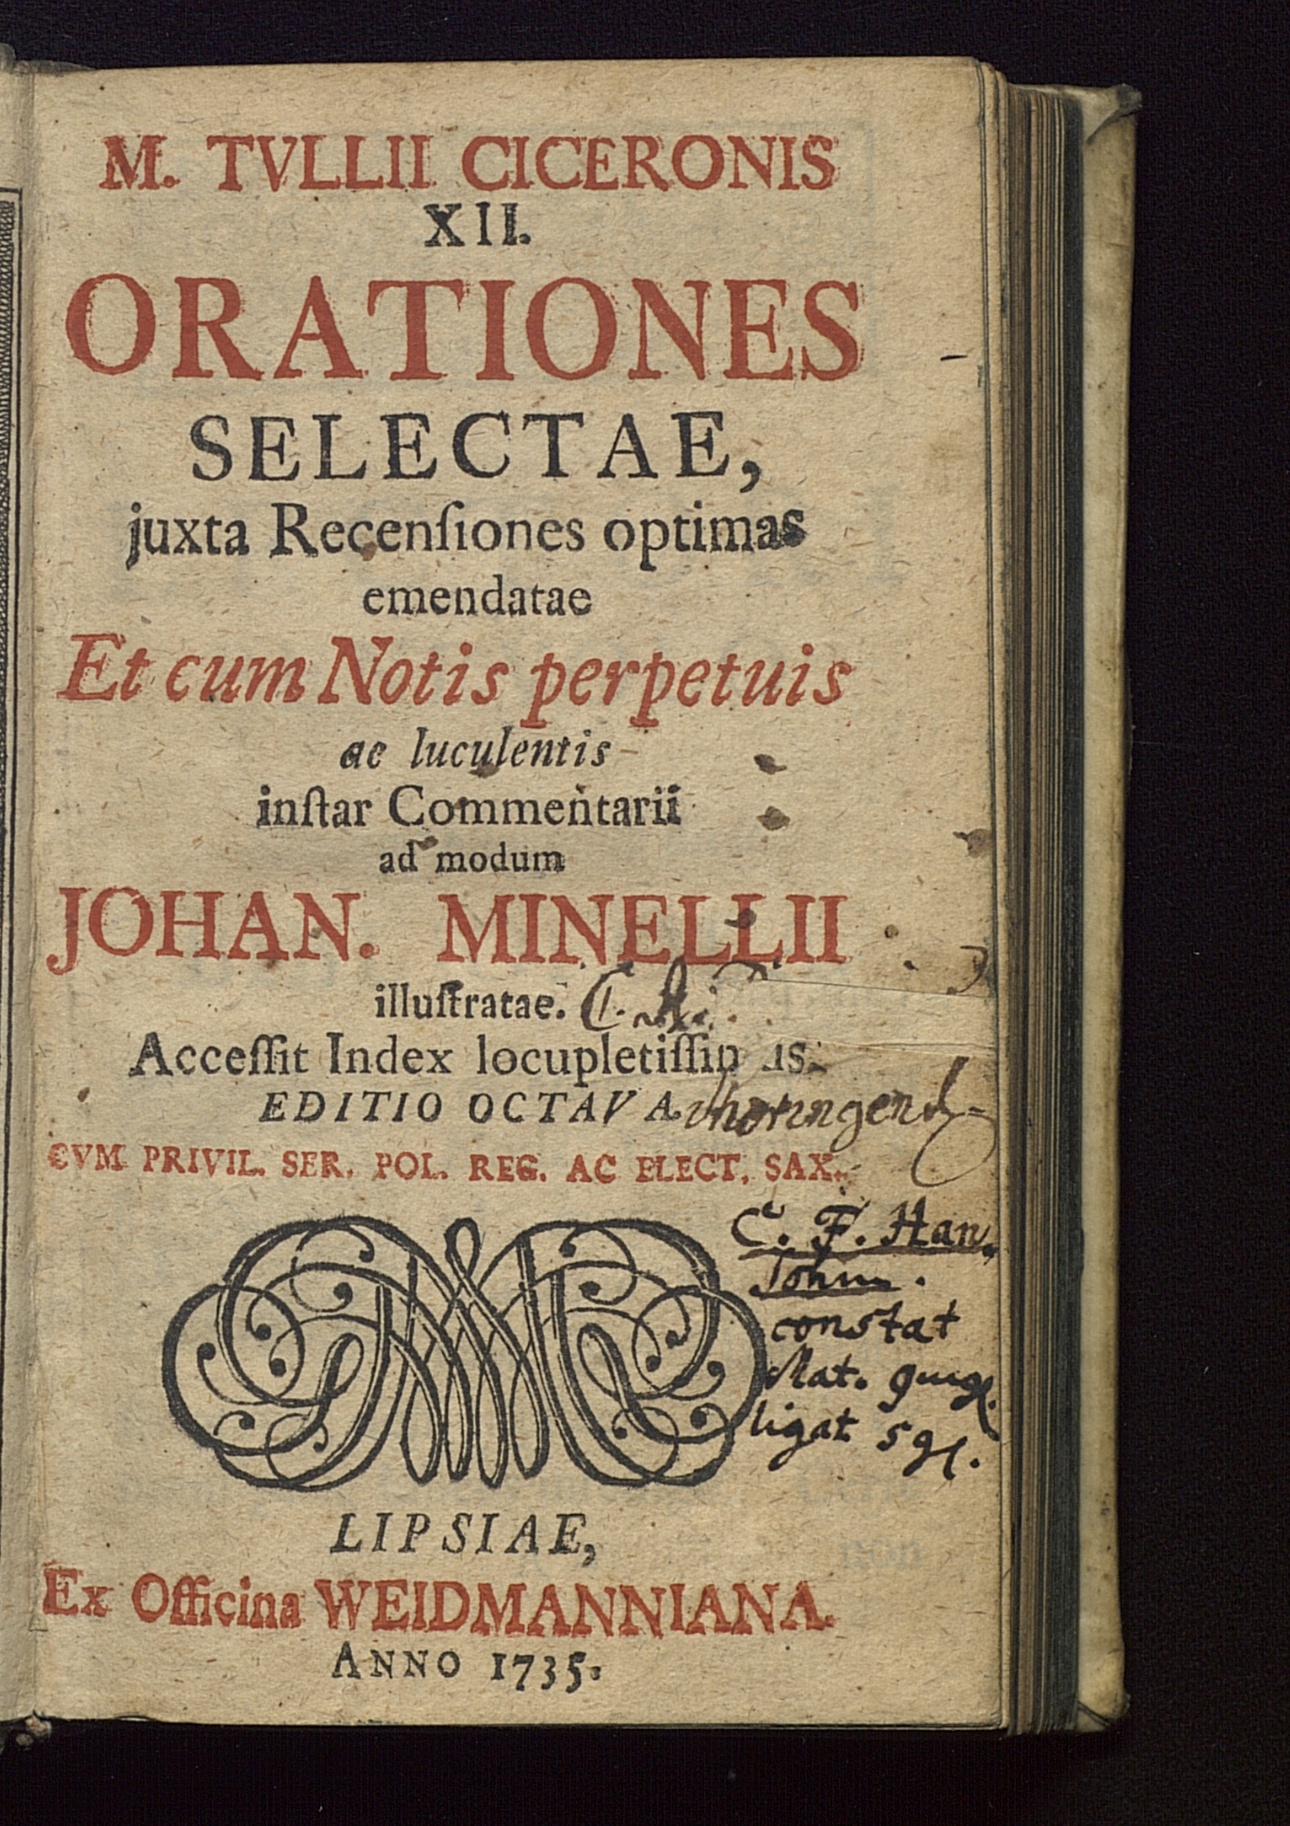 M. TVLLII CICERONIS
XII.
ORATIONES
SELECTAE,
juxta Recenſiones optimas
emendatae
Et cum Notis perpetuis
ac luculentis
inſtar Commentarii
ad modum
JOHAN. MINELLII
illuſtratae.
Acceſſit Index locupletiſſimus.
EDITIO OCTAVA.
CVM PRIVIL. SER. POL. REG. AC ELECT. SAX.
C. F. Han-
constat
ligat 5 gl.
LIPSIAE,
Ex Officina WEIDMANNIANA.
ANNO 1735.